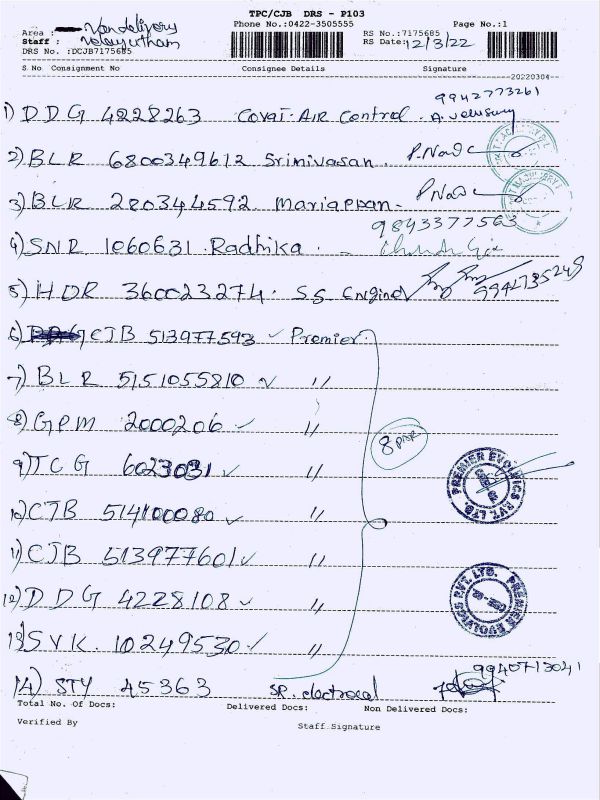 TPC/CJB DRS - P103
Phone No.:0422-3505555 Page No.:1
Area : Van delivery
Staff : Velayutham
DRS No.:DCJB7175685
RS No.:7175685
RS Date:12/3/22
S.No Consignment No Consignee Details Signature
20220304
9942773261
1) DDG 4228263 Covai Air Control.
2) BLR 6800349612 Srinivasan.
3) BLR 280344592 Mariappan.
9843377563
4) SNR 1060631 Radhika.
5) HDR 360023274. SS Engineer 9942735245
6) CJB 513977593 Premier
7) BLR 5151055810 "
8) GPM 2000206 "
8
9) TCG 6023031 "
PREMIER EVOLVICS PVT. LTD.
10) CJB 514100080 "
11) CJB 513977601 "
12) DDG 4228108 "
PREMIER EVOLVICS PVT. LTD.
13) SVK. 10249530 "
9940713041
14) STY 45363 SR. electrocal
Total No. Of Docs: Delivered Docs: Non Delivered Docs:
Verified By Staff Signature